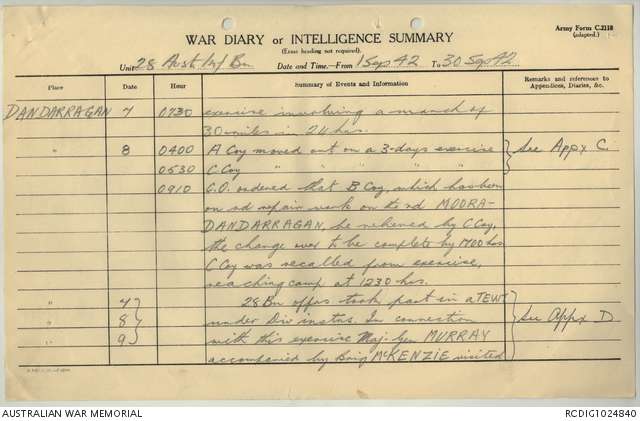 Army Form C.2118
(adapted.)
WAR DIARY or INTELLIGENCE SUMMARY
(Erase heading not required).
Unit 28 Aust Inf Bn Date and Time.—From 1 Sep 42 To 30 Sep 42
Place Date Hour Summary of Events and Information Remarks and references to Appendices, Diaries, &c.
DANDARRAGAN 7 0730 exercise involving a march of
30 miles in 24 hrs.
" 8 0400 A Coy moved out on a 3-days exercise See Appx C.
0530 C Coy " " " " " "
0910 C.O. ordered that B Coy, which has been
on rd repair work on the rd MOORA-
DANDARRAGAN, be relieved by C Coy,
the change over to be complete by 1700 hrs
C Coy was recalled from exercise,
reaching camp at 1230 hrs.
" 7 28 Bn offrs took part in a TEWT
" 8 under Div instns. In connection See Appx D
" 9 with this exercise Maj-Gen MURRAY
accompanied by Brig McKENZIE visited
AUSTRALIAN WAR MEMORIAL
RCDIG1024840